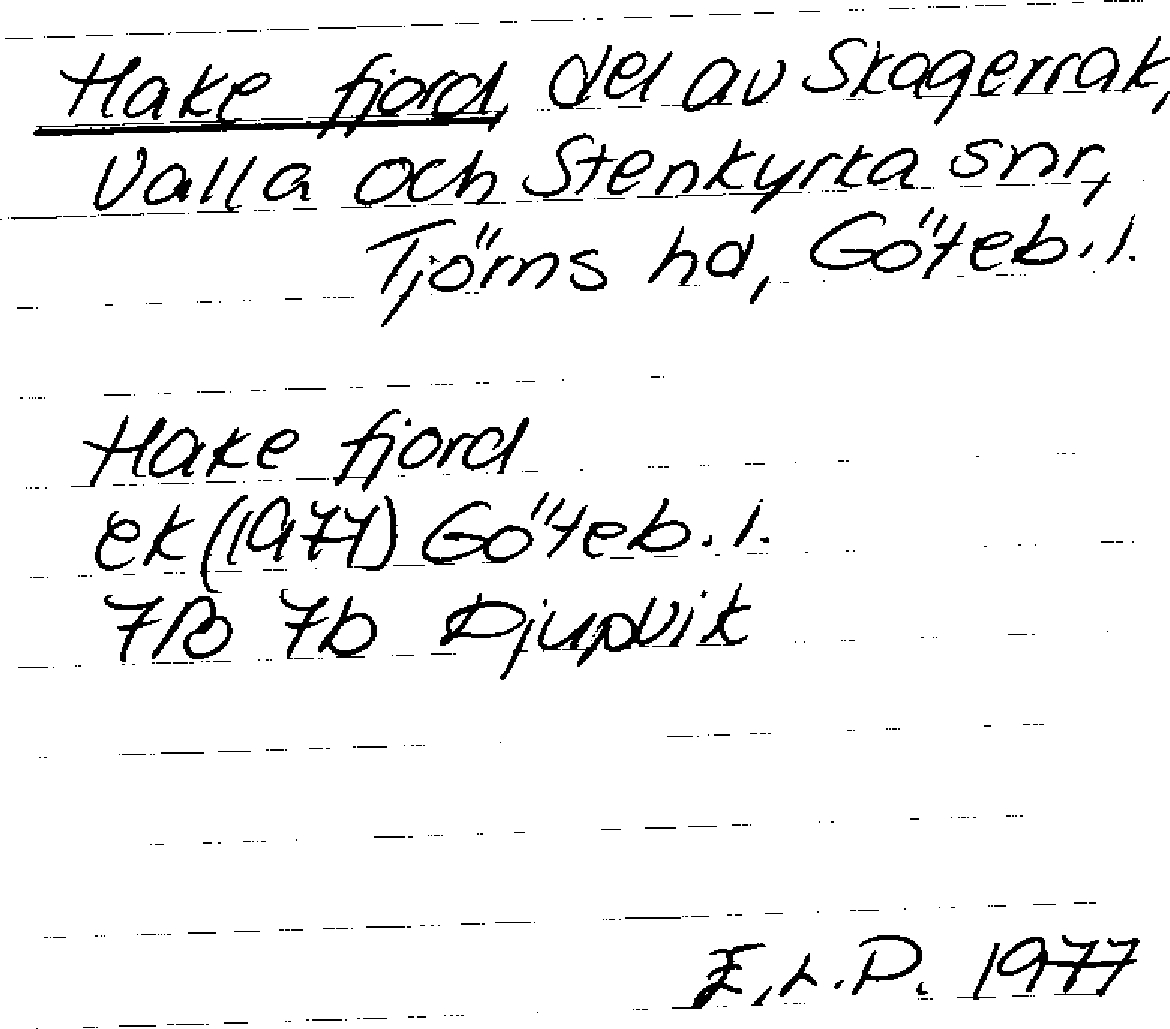 Hake fjord, del av Skagerrak,
Valla och Stenkyrka snr,
Tjörns hd, Göteb. l.
Hake fjord
ek (1977) Göteb. l.
7B 7b Djupvik
E.L.P. 1977